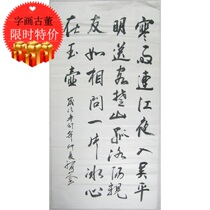 字画古董
限时特价
寒雨連江夜入吴平
明送客楚山孤洛陽親
友如相問一片冰心
在玉壺